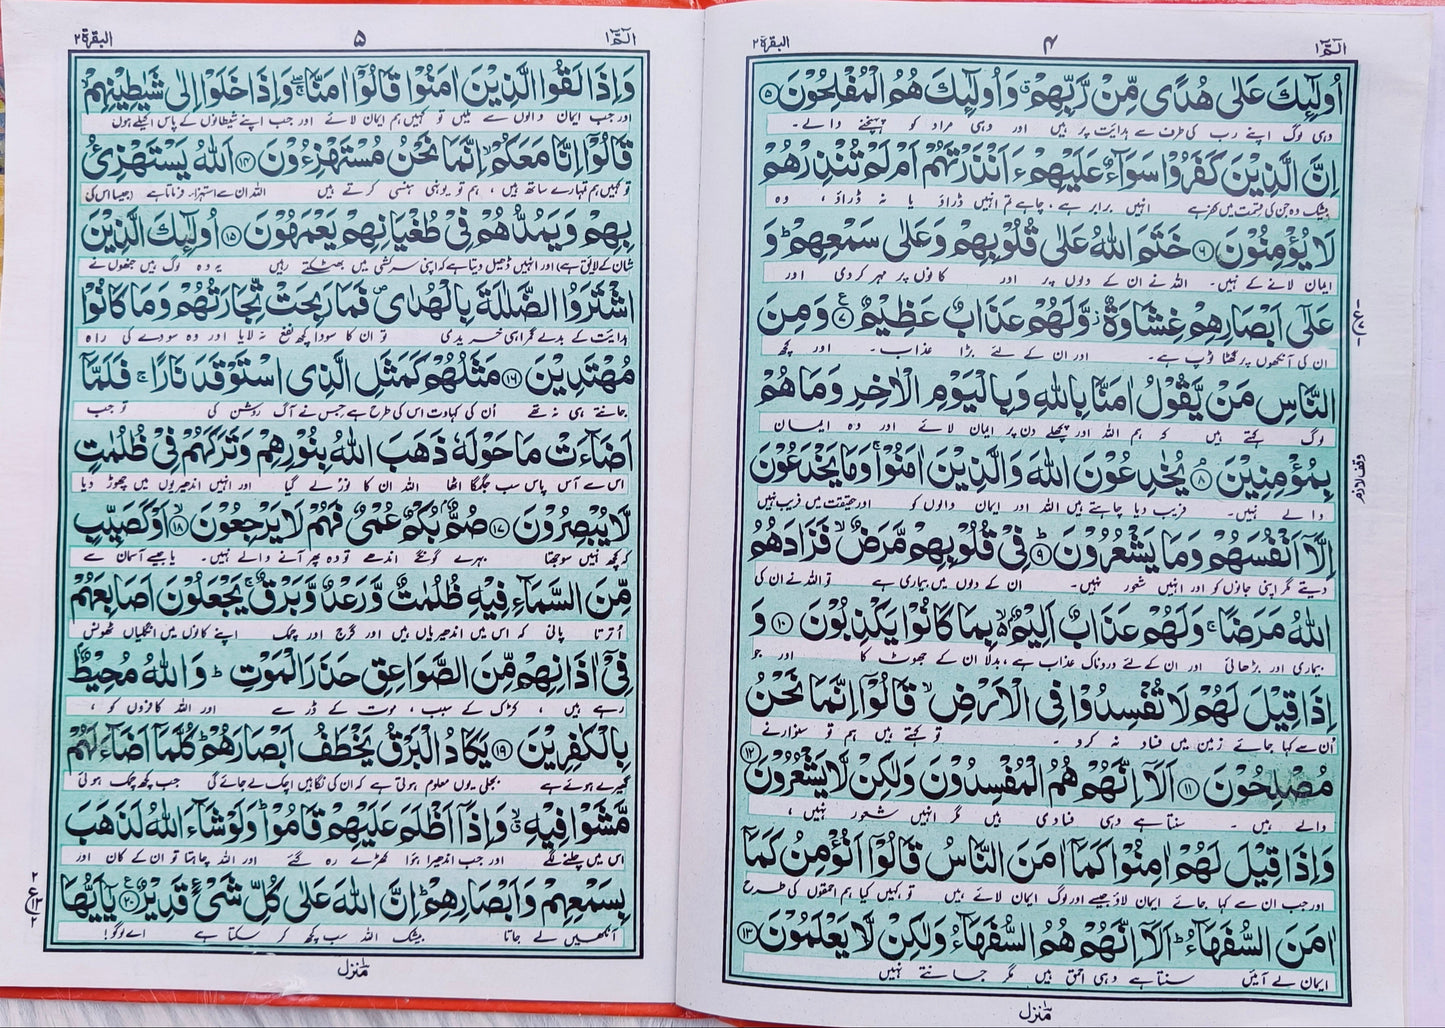 الٓمّٓ ١
۴
البقرۃ ٢
اُولٰٓئِكَ عَلٰى هُدًى مِّنْ رَّبِّهِمْ ۗ وَاُولٰٓئِكَ هُمُ الْمُفْلِحُوْنَ ۝۵
وہی لوگ اپنے رب کی طرف سے ہدایت پر ہیں اور وہی مراد کو پہنچنے والے۔
اِنَّ الَّذِيْنَ كَفَرُوْا سَوَآءٌ عَلَيْهِمْ ءَاَنْذَرْتَهُمْ اَمْ لَمْ تُنْذِرْهُمْ
بیشک وہ جن کی قسمت میں کفر ہے انہیں برابر ہے، چاہے تم انہیں ڈراؤ یا نہ ڈراؤ، وہ
لَا يُؤْمِنُوْنَ ۝۶ خَتَمَ اللّٰهُ عَلٰى قُلُوْبِهِمْ وَعَلٰى سَمْعِهِمْ ؕ وَ
ایمان لانے کے نہیں۔ اللہ نے ان کے دلوں پر اور کانوں پر مہر کر دی اور
عَلٰٓى اَبْصَارِهِمْ غِشَاوَةٌ ؗ وَّلَهُمْ عَذَابٌ عَظِيْمٌ ۝۷ وَمِنَ
ان کی آنکھوں پر گھٹا ٹوپ ہے۔ اور ان کے لئے بڑا عذاب۔ اور کچھ
النَّاسِ مَنْ يَّقُوْلُ اٰمَنَّا بِاللّٰهِ وَبِالْيَوْمِ الْاٰخِرِ وَمَا هُمْ
لوگ کہتے ہیں کہ ہم اللہ اور پچھلے دن پر ایمان لائے اور وہ ایمان
بِمُؤْمِنِيْنَ ۝۸ يُخٰدِعُوْنَ اللّٰهَ وَالَّذِيْنَ اٰمَنُوْا ۚ وَمَا يَخْدَعُوْنَ
والے نہیں۔ فریب دیا چاہتے ہیں اللہ اور ایمان والوں کو اور حقیقت میں فریب نہیں
وقف لازم
اِلَّآ اَنْفُسَهُمْ وَمَا يَشْعُرُوْنَ ۝۹ فِيْ قُلُوْبِهِمْ مَّرَضٌ ۙ فَزَادَهُمُ
دیتے مگر اپنی جانوں کو اور انہیں شعور نہیں۔ ان کے دلوں میں بیماری ہے تو اللہ نے ان کی
اللّٰهُ مَرَضًا ۚ وَلَهُمْ عَذَابٌ اَلِيْمٌۢ ۙ بِمَا كَانُوْا يَكْذِبُوْنَ ۝۱۰ وَ
بیماری اور بڑھائی اور ان کے لئے دردناک عذاب ہے، بدلا ان کے جھوٹ کا اور جو
اِذَا قِيْلَ لَهُمْ لَا تُفْسِدُوْا فِي الْاَرْضِ ۙ قَالُوْٓا اِنَّمَا نَحْنُ
اُن سے کہا جائے زمین میں فساد نہ کرو۔ تو کہتے ہیں ہم تو سنوارنے
مُصْلِحُوْنَ ۝۱۱ اَلَآ اِنَّهُمْ هُمُ الْمُفْسِدُوْنَ وَلٰكِنْ لَّا يَشْعُرُوْنَ ۝۱۲
والے ہیں۔ سنتا ہے وہی فسادی ہیں مگر انہیں شعور نہیں،
وَاِذَا قِيْلَ لَهُمْ اٰمِنُوْا كَمَآ اٰمَنَ النَّاسُ قَالُوْٓا اَنُؤْمِنُ كَمَآ
اور جب ان سے کہا جائے ایمان لاؤ جیسے اور لوگ ایمان لائے ہیں تو کہیں کیا ہم احمقوں کی طرح
اٰمَنَ السُّفَهَآءُ ؕ اَلَآ اِنَّهُمْ هُمُ السُّفَهَآءُ وَلٰكِنْ لَّا يَعْلَمُوْنَ ۝۱۳
ایمان لے آئیں سنتا ہے وہی احمق ہیں مگر جانتے نہیں
منزل
الٓمّٓ ١
۵
البقرۃ ٢
وَاِذَا لَقُوا الَّذِيْنَ اٰمَنُوْا قَالُوْٓا اٰمَنَّا ۖۚ وَاِذَا خَلَوْا اِلٰى شَيٰطِيْنِهِمْ ۙ
اور جب ایمان والوں سے ملیں تو کہیں ہم ایمان لائے اور جب اپنے شیطانوں کے پاس اکیلے ہوں
قَالُوْٓا اِنَّا مَعَكُمْ ۙ اِنَّمَا نَحْنُ مُسْتَهْزِءُوْنَ ۝۱۴ اَللّٰهُ يَسْتَهْزِئُ
تو کہیں ہم تمہارے ساتھ ہیں، ہم تو یونہی ہنسی کرتے ہیں اللہ ان سے استہزا فرماتا ہے (جیسا اس کی
بِهِمْ وَيَمُدُّهُمْ فِيْ طُغْيَانِهِمْ يَعْمَهُوْنَ ۝۱۵ اُولٰٓئِكَ الَّذِيْنَ
شان کے لائق ہے) اور انہیں ڈھیل دیتا ہے کہ اپنی سرکشی میں بھٹکتے رہیں یہ وہ لوگ ہیں جنھوں نے
اشْتَرَوُا الضَّلٰلَةَ بِالْهُدٰى ۪ فَمَا رَبِحَتْ تِّجَارَتُهُمْ وَمَا كَانُوْا
ہدایت کے بدلے گمراہی خریدی تو ان کا سودا کچھ نفع نہ لایا اور وہ سودے کی راہ
مُهْتَدِيْنَ ۝۱۶ مَثَلُهُمْ كَمَثَلِ الَّذِى اسْتَوْقَدَ نَارًا ۚ فَلَمَّآ
جانتے ہی نہ تھے اُن کی کہاوت اس کی طرح ہے جس نے آگ روشن کی تو جب
اَضَآءَتْ مَا حَوْلَهٗ ذَهَبَ اللّٰهُ بِنُوْرِهِمْ وَتَرَكَهُمْ فِيْ ظُلُمٰتٍ
اس سے آس پاس سب جگمگا اٹھا اللہ ان کا نور لے گیا اور انہیں اندھیریوں میں چھوڑ دیا
لَّا يُبْصِرُوْنَ ۝۱۷ صُمٌّۢ بُكْمٌ عُمْيٌ فَهُمْ لَا يَرْجِعُوْنَ ۝۱۸ اَوْ كَصَيِّبٍ
کہ کچھ نہیں سوجھتا بہرے گونگے اندھے تو وہ پھر آنے والے نہیں۔ یا جیسے آسمان سے
مِّنَ السَّمَآءِ فِيْهِ ظُلُمٰتٌ وَّرَعْدٌ وَّبَرْقٌ ۚ يَجْعَلُوْنَ اَصَابِعَهُمْ
اُترتا پانی کہ اس میں اندھیریاں ہیں اور گرج اور چمک اپنے کانوں میں انگلیاں ٹھونس
فِيْٓ اٰذَانِهِمْ مِّنَ الصَّوَاعِقِ حَذَرَ الْمَوْتِ ؕ وَاللّٰهُ مُحِيْطٌۢ
رہے ہیں، کڑک کے سبب، موت کے ڈر سے اور اللہ کافروں کو،
بِالْكٰفِرِيْنَ ۝۱۹ يَكَادُ الْبَرْقُ يَخْطَفُ اَبْصَارَهُمْ ؕ كُلَّمَآ اَضَآءَ لَهُمْ
گھیرے ہوئے ہے بجلی یوں معلوم ہوتی ہے کہ ان کی نگاہیں اچک لے جائے گی جب کچھ چمک ہوئی
مَّشَوْا فِيْهِ ۙ وَاِذَآ اَظْلَمَ عَلَيْهِمْ قَامُوْا ؕ وَلَوْ شَآءَ اللّٰهُ لَذَهَبَ
اس میں چلنے لگے اور جب اندھیرا ہوا کھڑے رہ گئے اور اللہ چاہتا تو ان کے کان اور
بِسَمْعِهِمْ وَاَبْصَارِهِمْ ؕ اِنَّ اللّٰهَ عَلٰى كُلِّ شَيْءٍ قَدِيْرٌ ۝۲۰ يٰٓاَيُّهَا
آنکھیں لے جاتا بیشک اللہ سب کچھ کر سکتا ہے اے لوگو!
منزل